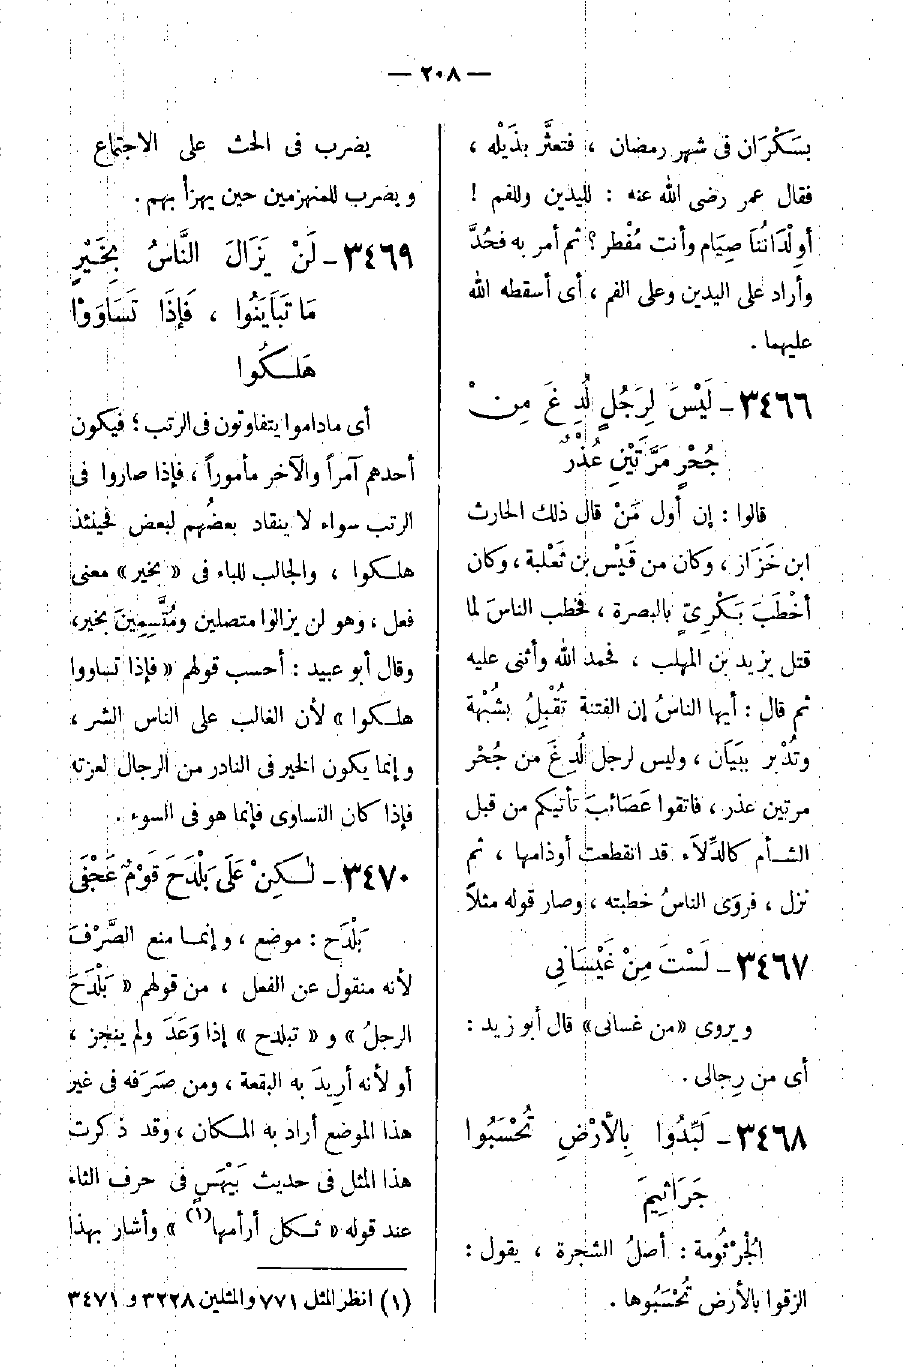 — ٢٠٨ —
بسَكْرَان فى شهر رمضان ، فتعثَّر بذَيْله ،
فقال عمر رضى الله عنه : لليدين وللفم !
أوِلْدَانُنَا صِيَام وأنت مُفْطر ؟ ثم أمر به فحُدَّ
وأراد على اليدين وعلى الفم ، أى أسقطه الله
عليهما .
٣٤٦٦ – لَيْسَ لِرَجُلٍ لُدِغَ مِنْ
جُحْرٍ مَرَّتَيْنِ عُذْرٌ
قالوا : إن أول مَنْ قال ذلك الحارث
ابن خَزَاز ، وكان من قَيْس بن ثَعْلبة ، وكان
أخْطَبَ بَكْرِىٍّ بالبصرة ، فخطب الناسَ لما
قتل يزيد بن المهلب ، فحمد الله وأثنى عليه
ثم قال : أيها الناسُ إن الفتنة تُقْبِلُ بشُبْهة
وتُدْبر ببَيَان ، وليس لرجل لُدِغَ من جُحْر
مرتين عذر ، فاتقوا عَصَائبَ تأتيكم من قبل
الشأم كالدِّلاَء قد انقطعت أوذامها ، ثم
نزل ، فروَى الناسُ خطبته ، وصار قوله مثلاً
٣٤٦٧ – لَسْتَ مِنْ غَيْسَانِى
ويروى «من غسانى» قال أبو زيد :
أى من رِجالى .
٣٤٦٨ – لَبِّدُوا بِالأرْضِ تُحْسَبُوا
جَرَاثِيمَ
الجُرْثُومة : أصلُ الشجرة ، يقول :
الزقوا بالأرض تُحْسَبُوها .
يضرب فى الحث على الاجتماع
ويضرب للمنهزمين حين يهزأ بهم .
٣٤٦٩ – لَنْ يَزَالَ النَّاسُ بِخَيْرٍ
مَا تَبَايَنُوا ، فَإذَا تَسَاوَوْا
هَلَكُوا
أى ماداموا يتفاوتون فى الرتب ؛ فيكون
أحدهم آمراً والآخر مأموراً ، فإذا صاروا فى
الرتب سواء لا ينقاد بعضُهم لبعض فحينئذ
هلكوا ، والجالب للباء فى « بخير » معنى
فعل ، وهو لن يزالوا متصلين ومُتَّسِمِينَ بخير ،
وقال أبو عبيد : أحسب قولهم « فإذا تساووا
هلكوا » لأن الغالب على الناس الشر ،
وإنما يكون الخير فى النادر من الرجال لعزته
فإذا كان التساوى فإنما هو فى السوء .
٣٤٧٠ – لٰكِنْ عَلَى بَلْدَحَ قَوْمٌ عَجْفَى
بَلْدَح : موضع ، وإنما منع الصَّرْفَ
لأنه منقول عن الفعل ، من قولهم « بَلْدَحَ
الرجلُ » و « تبلدح » إذا وَعَدَ ولم ينجز ،
أو لأنه أرِيدَ به البقعة ، ومن صَرَفه فى غير
هذا الموضع أراد به المكان ، وقد ذكرت
هذا المثل فى حديث بَيْهَسٍ فى حرف الثاء
عند قوله « ثكل أرأمها (١) » وأشار بهذا
(١) انظر المثل ٧٧١ والمثلين ٣٢٢٨ و ٣٤٧١